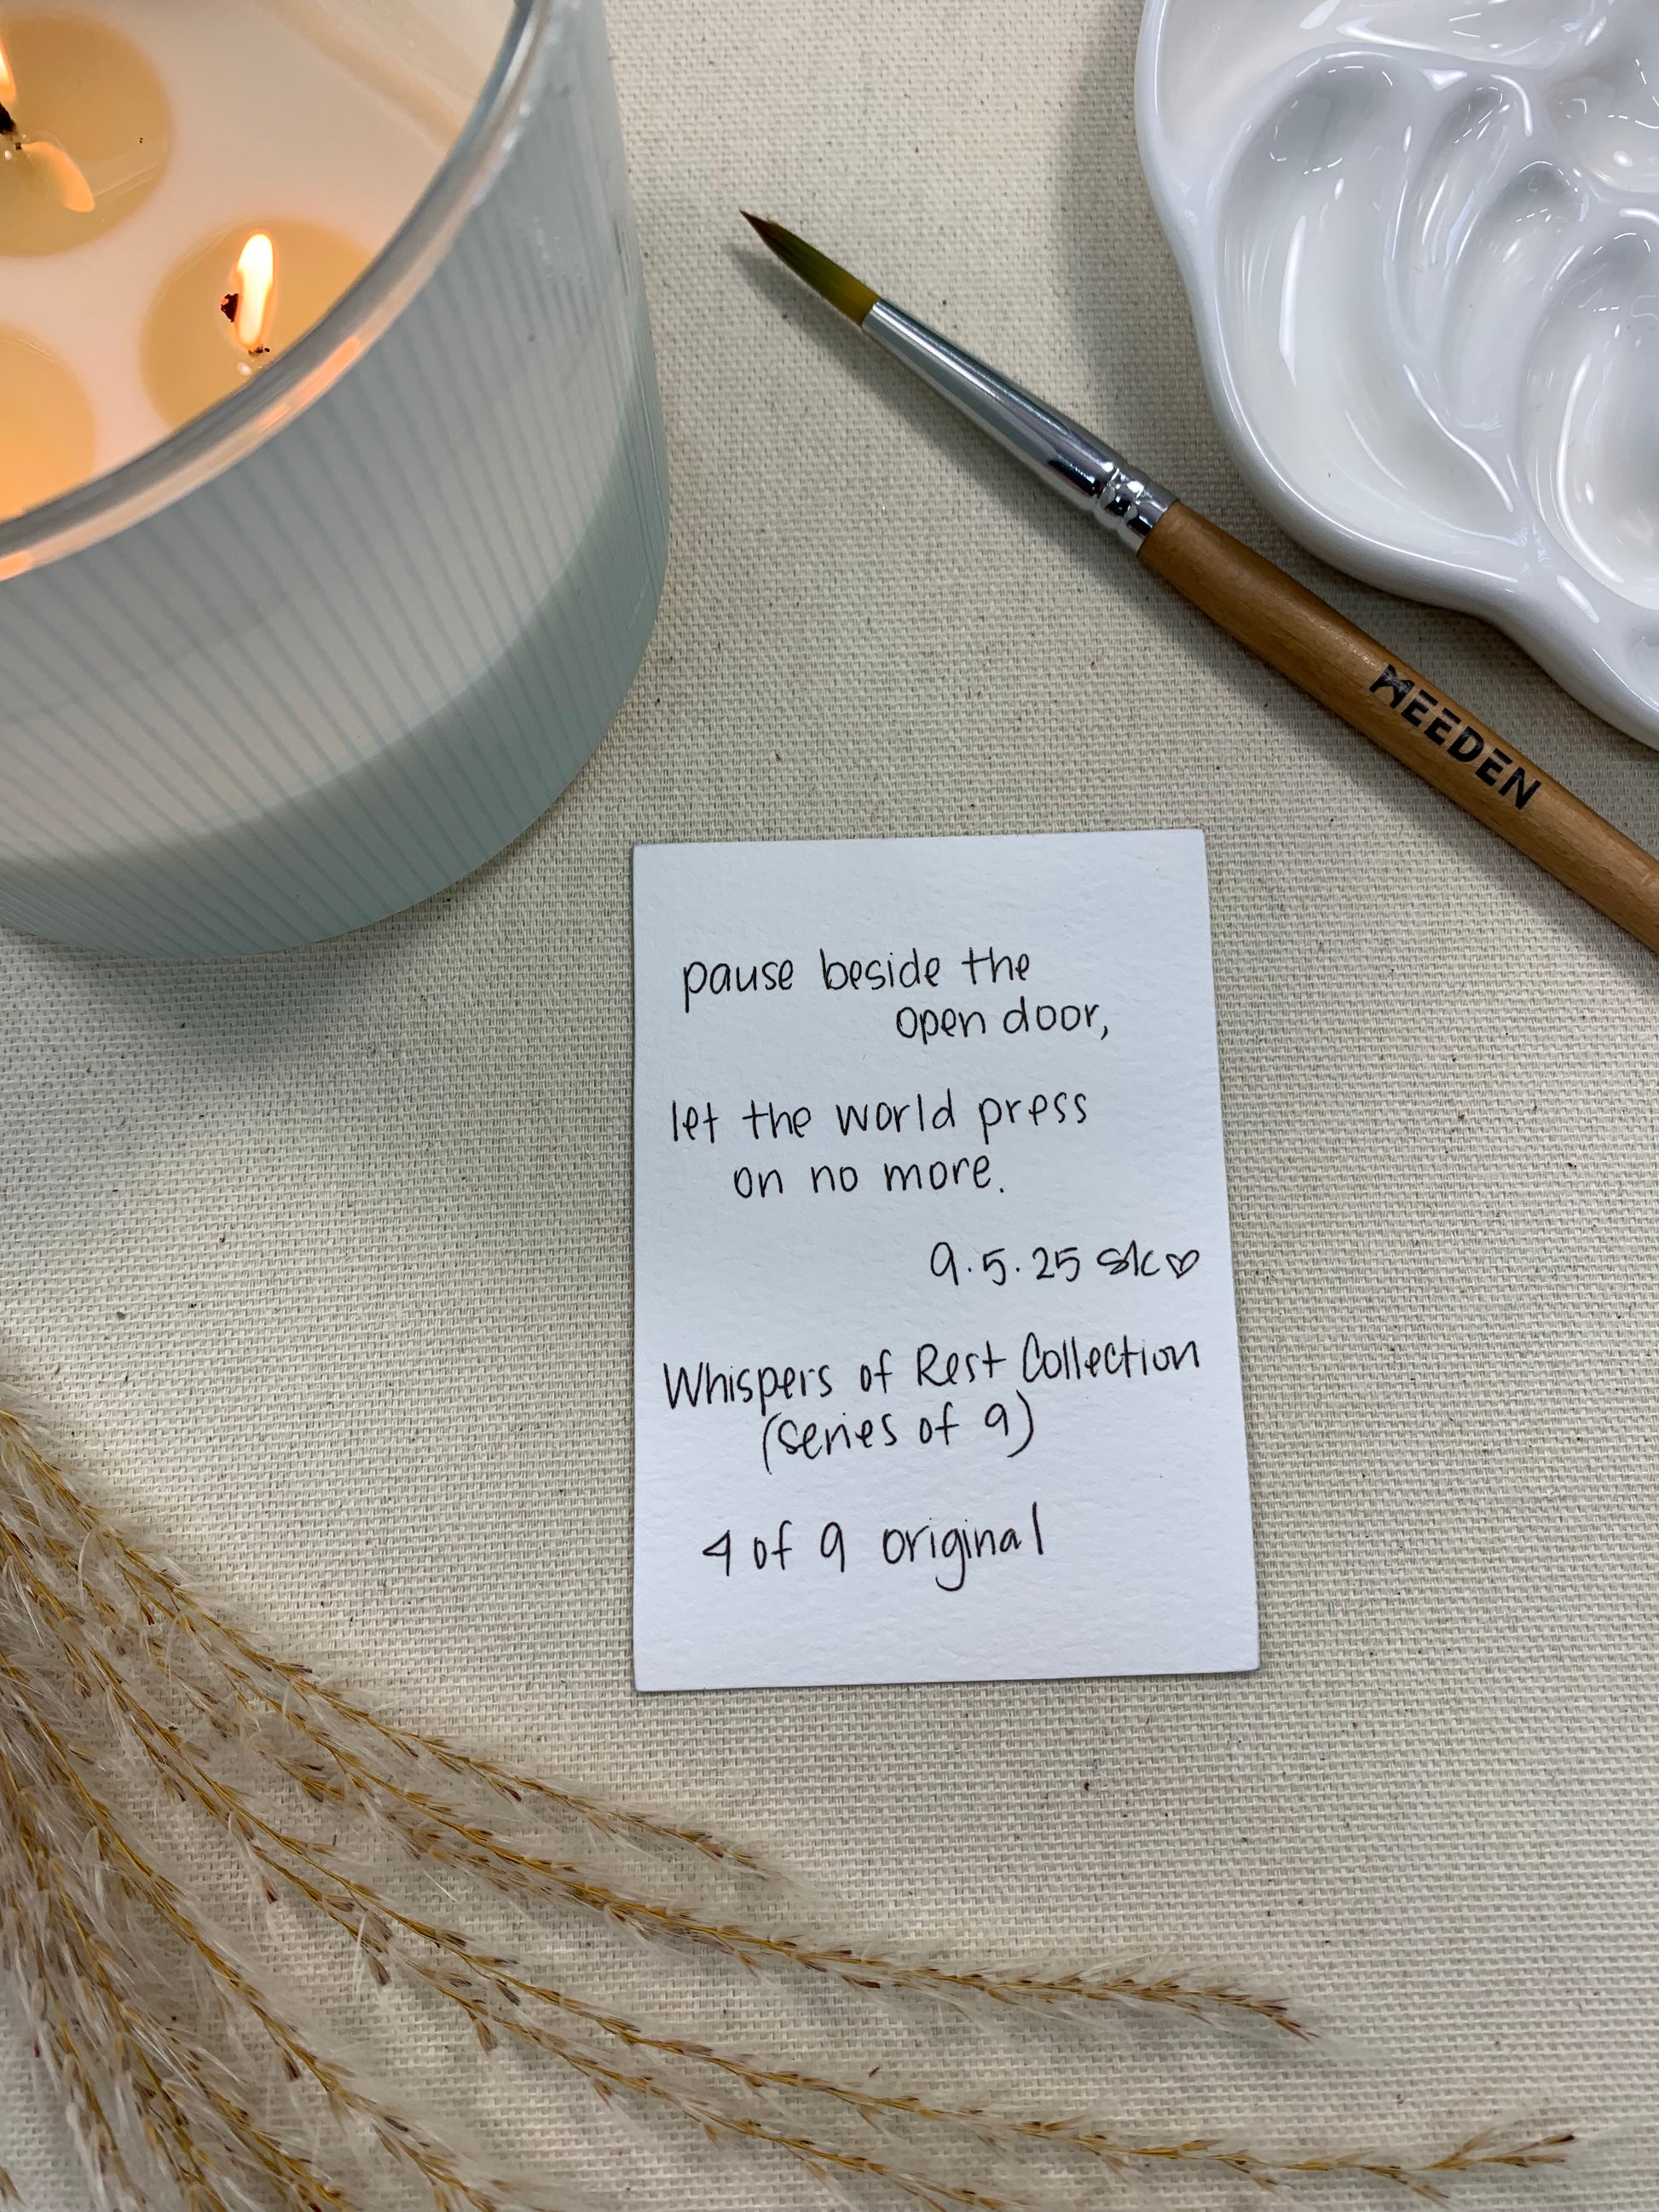 MEEDEN
pause beside the
open door,
let the world press
on no more.
9.5.25 sk♡
Whispers of Rest Collection
(series of 9)
4 of 9 original